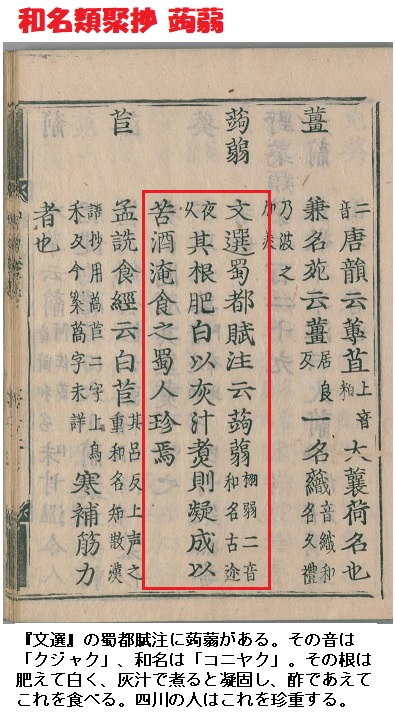 和名類聚抄 蒟蒻
二音唐韻云蓴苴上音粕大蘘荷名也
薑 兼名苑云薑居良反一名䉅音織和名久禮
乃波之加美
蒟蒻 文選蜀都賦注云蒟蒻栩弱二音和名古迩
夜久其根肥白以灰汁煑則凝成以
苦酒淹食之蜀人珍焉
苣 孟詵食經云白苣其呂反上声之重和名知散漢
語抄用萵苣二字上爲禾久今案萵字未詳寒補筋力
者也
『文選』の蜀都賦注に蒟蒻がある。その音は
「クジャク」、和名は「コニヤク」。その根は
肥えて白く、灰汁で煮ると凝固し、酢であえて
これを食べる。四川の人はこれを珍重する。